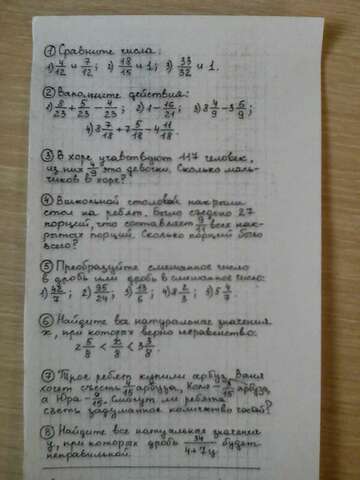 ① Сравните числа:
1) 4/12 и 7/12; 2) 18/15 и 1; 3) 33/32 и 1.
② Выполните действия:
1) 8/23 + 5/23 - 4/23; 2) 1 - 16/21; 3) 8 4/9 - 3 5/9;
4) 8 7/18 + 7 5/18 - 4 11/18.
③ В хоре участвуют 117 человек,
из них 4/9 это девочки. Сколько маль-
чиков в хоре?
④ В школьной столовой накрыли
стол на ребят. Было съедено 27
порций, что составляет 9/11 всех нак-
рытых порций. Сколько порций было
всего?
⑤ Преобразуйте смешанное число
в дробь или дробь в смешанное число:
1) 7; 2) 95/24; 3) 13/6; 4) 8 2/3; 5) 5 4/
⑥ Найдите все натуральные значения
x, при которых верно неравенство:
2 5/8 < x/8 < 3 3/8.
⑦ Трое ребят купили арбуз. Ваня
хочет съесть /15 арбуза, Коля - /15 арбуза,
а Юра - /15. Смогут ли ребята
съесть задуманное количество
⑧ Найдите все натуральные значения
y, при которых дробь 34/(4+7y) будет
неправильной.